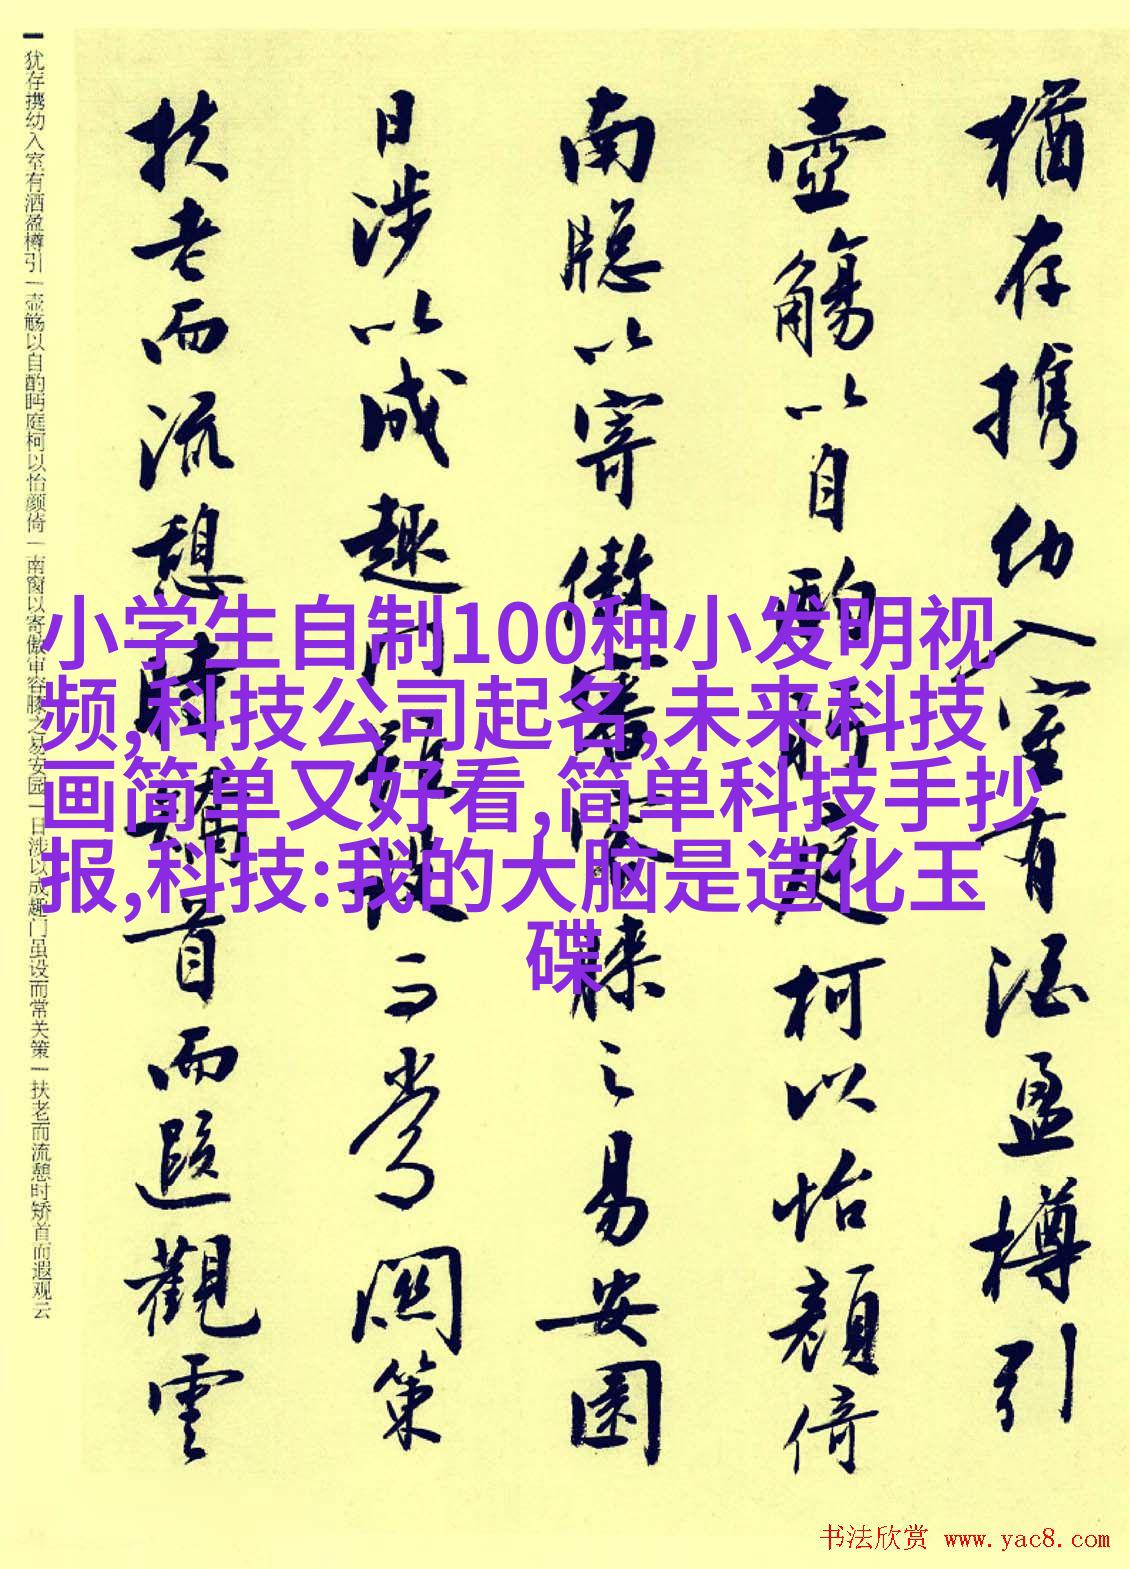 犹存携幼入室有酒盈樽引一壶觞以自酌眄庭柯以怡颜倚一南窗以寄傲审容膝之易安园一日涉以成趣门虽设而常关策一扶老而流憩时矫首而遐观云
猶存携幼入室有酒盈樽引
壺觴以自酌眄庭柯以怡顏倚
南牕以寄傲審容膝之易安園
日涉以成趣門雖設而常関策
扶老而流憩時矯首而遐觀雲
小学生自制100种小发明视
频,科技公司起名,未来科技
画简单又好看,简单科技手抄
报,科技:我的大脑是造化玉
碟
书法欣赏 www.yac8.com